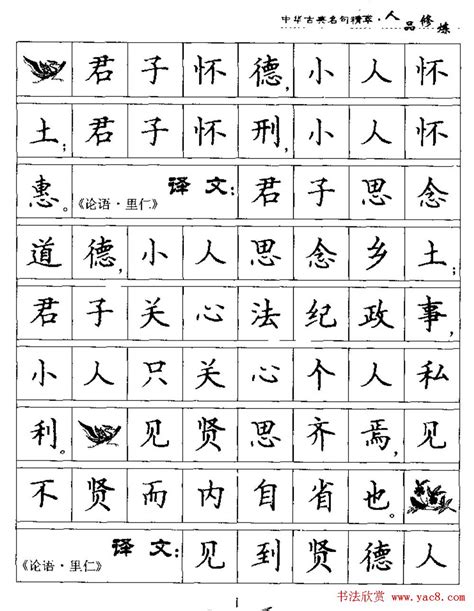 中华古典名句精萃·人品修炼
君子怀德,小人怀
土;君子怀刑,小人怀
惠。《论语·里仁》译文:君子思念
道德,小人思念乡土;
君子关心法纪政事,
小人只关心个人私
利。见贤思齐焉,见
不贤而内自省也。
《论语·里仁》译文:见到贤德人
1
书法欣赏 www.yac8.com